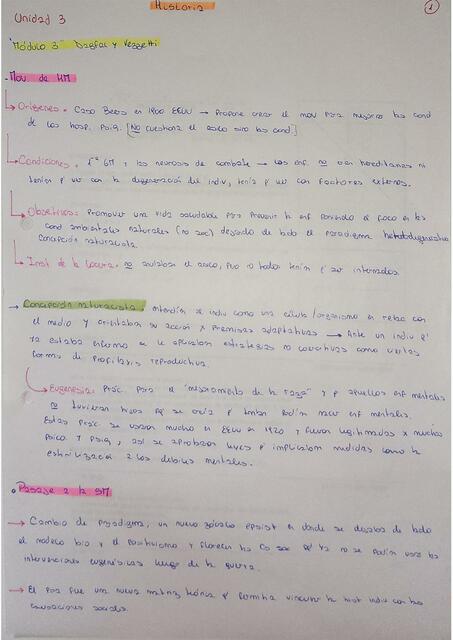 Historia
1
Unidad 3
"Módulo 3" Dagfal y Vezzetti
Mov de HM
Orígenes. Caso Beers en 1900 EEUU → Propone crear el mov para mejorar las cond
de los hosp. psiq. [No cuestiona el asilo sino las cond]
Condiciones. 1ª GM y las neurosis de combate → las enf. no eran hereditarias ni
tenían q ver con la degeneración del indiv, tenía q ver con factores externos.
Objetivos: Promover una vida saludable para prevenir la enf poniendo el foco en las
cond ambientales naturales (no soc) dejando de lado el paradigma
concepción naturalista.
Inst de la locura. no anulaban el asilo, pero no todos tenían q ser internados.
Concepción naturalista: entendían al indiv como una célula/organismo en relac con
el medio y orientaban su acción x premisas adaptativas → Ante un indiv q'
ya estaba enfermo se le aplicaban estrategias no coercitivas como ciertas
formas de profilaxis reproductiva.
Eugenesia: Prác. para el "mejoramiento de la raza" y p aquellos enf mentales
no tuvieran hijos pq se creía q también podían nacer enf mentales.
Estas prác. se usaron mucho en EEUU en 1920 y fueron legitimadas x muchos
psico y psiq, así se aprobaron leyes q implicaban medidas como la
esterilización a los débiles mentales.
Pasaje a la SM
→ Cambio de paradigma, un nuevo zócalo epist en donde se dejaba de lado
el modelo bio y el positivismo y florecen las Cs soc q' ya no se podían usar las
intervenciones eugenésicas luego de la guerra.
→ El psa fue una nueva matriz teórica q' permitía vincular la hist indiv con las
sociales.